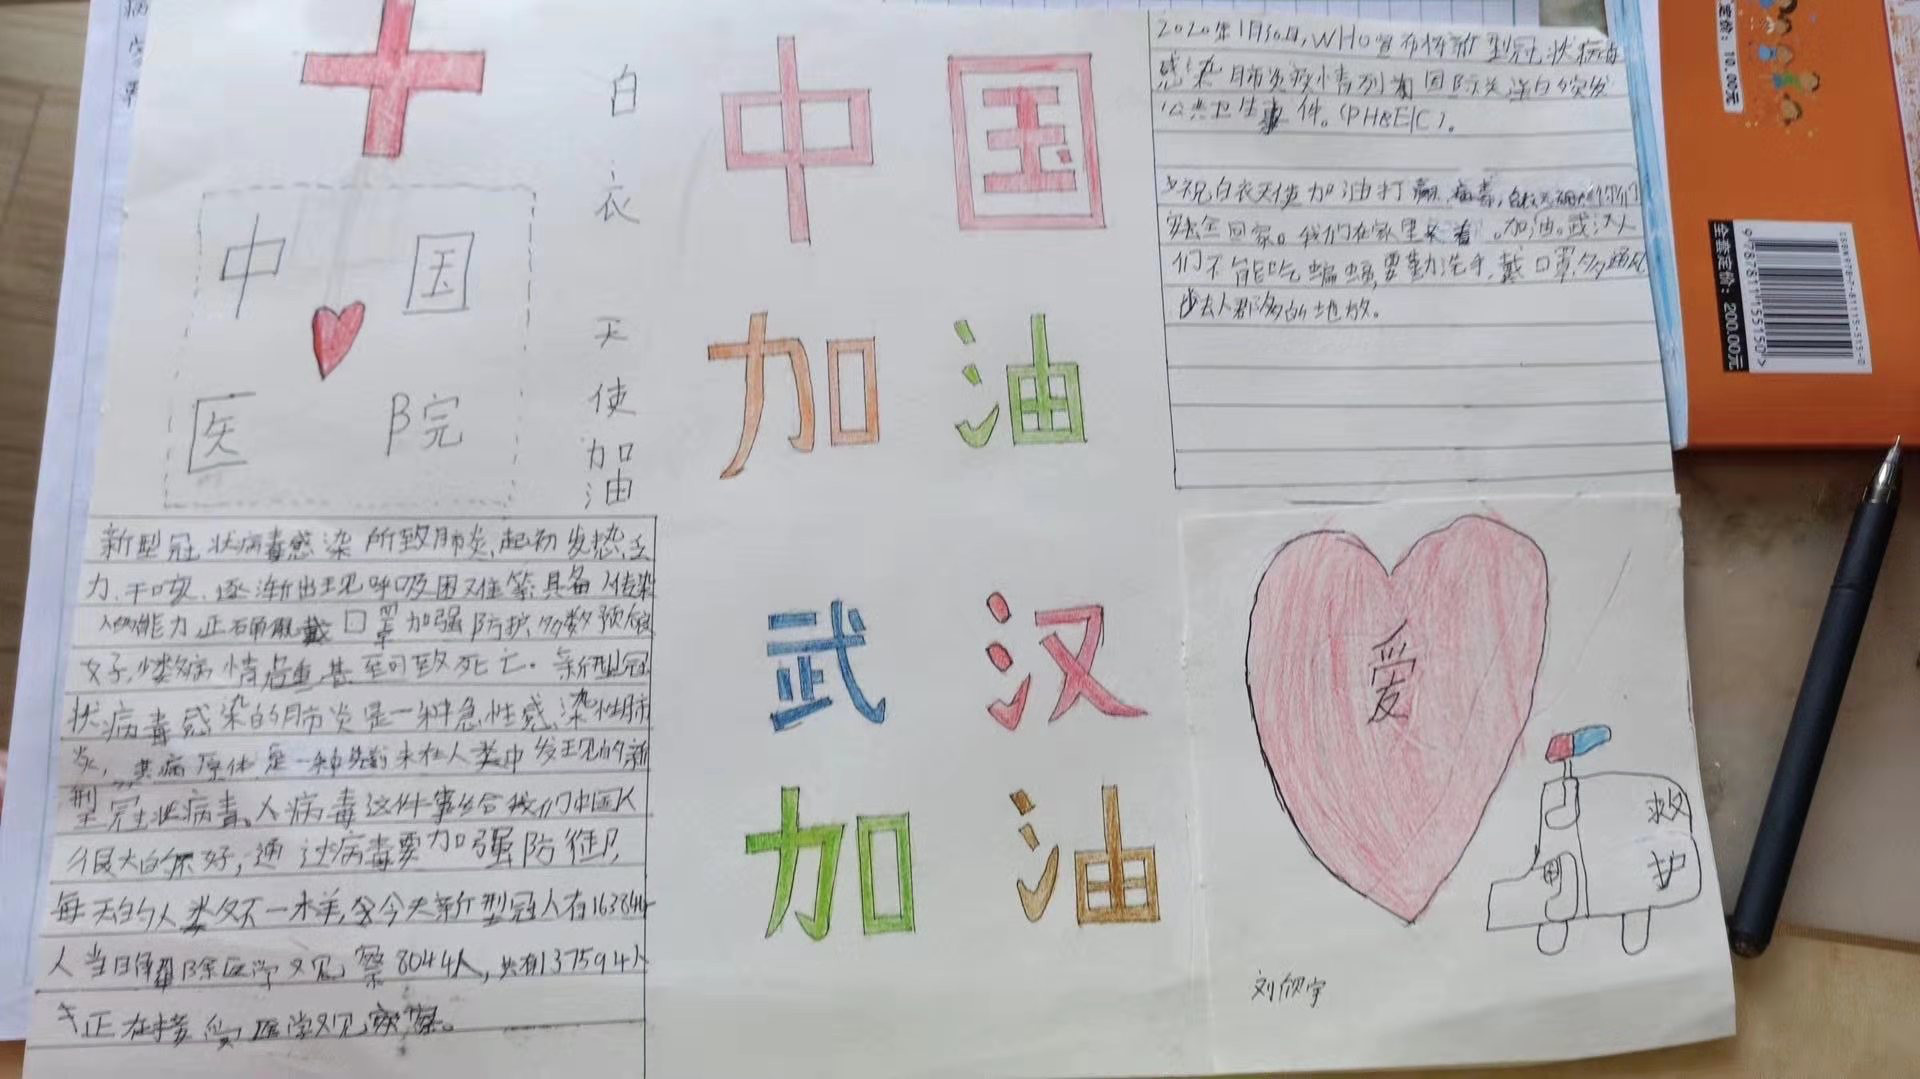 中国
医院
白衣天使加油
中国
加油
武汉
加油
2020年1月30日,WHO宣布将新型冠状病毒
感染肺炎疫情列为国际关注的突发
公共卫生事件。(PH8EIC)。
祝白衣天使加油打赢病毒,你们
回家。我们在家里看。加油。武汉人
们不能吃蝙蝠,要勤洗手,戴口罩,多通风
少去人群多的地放。
新型冠状病毒感染所致肺炎,起初发热,乏
力、干咳、逐渐出现呼吸困难等,具备人传染
人的能力,正确戴口罩加强防护,多数预后
好,少数病情危重甚至可致死亡。新型冠
状病毒感染的肺炎是一种急性感染性肺
炎,其病原体是一种先前未在人类中发现的新
型冠状病毒。人病毒这件事给我们中国人
很大的不好,通过病毒要加强防御,
每天的人类多不一样,今天新型冠人有16384
人当日解除医学观察8044人,共有137594人
正在接受医学观察。
爱
救护
刘欣宇
定价:10.00元
全套定价:200.00元
9787811155150>